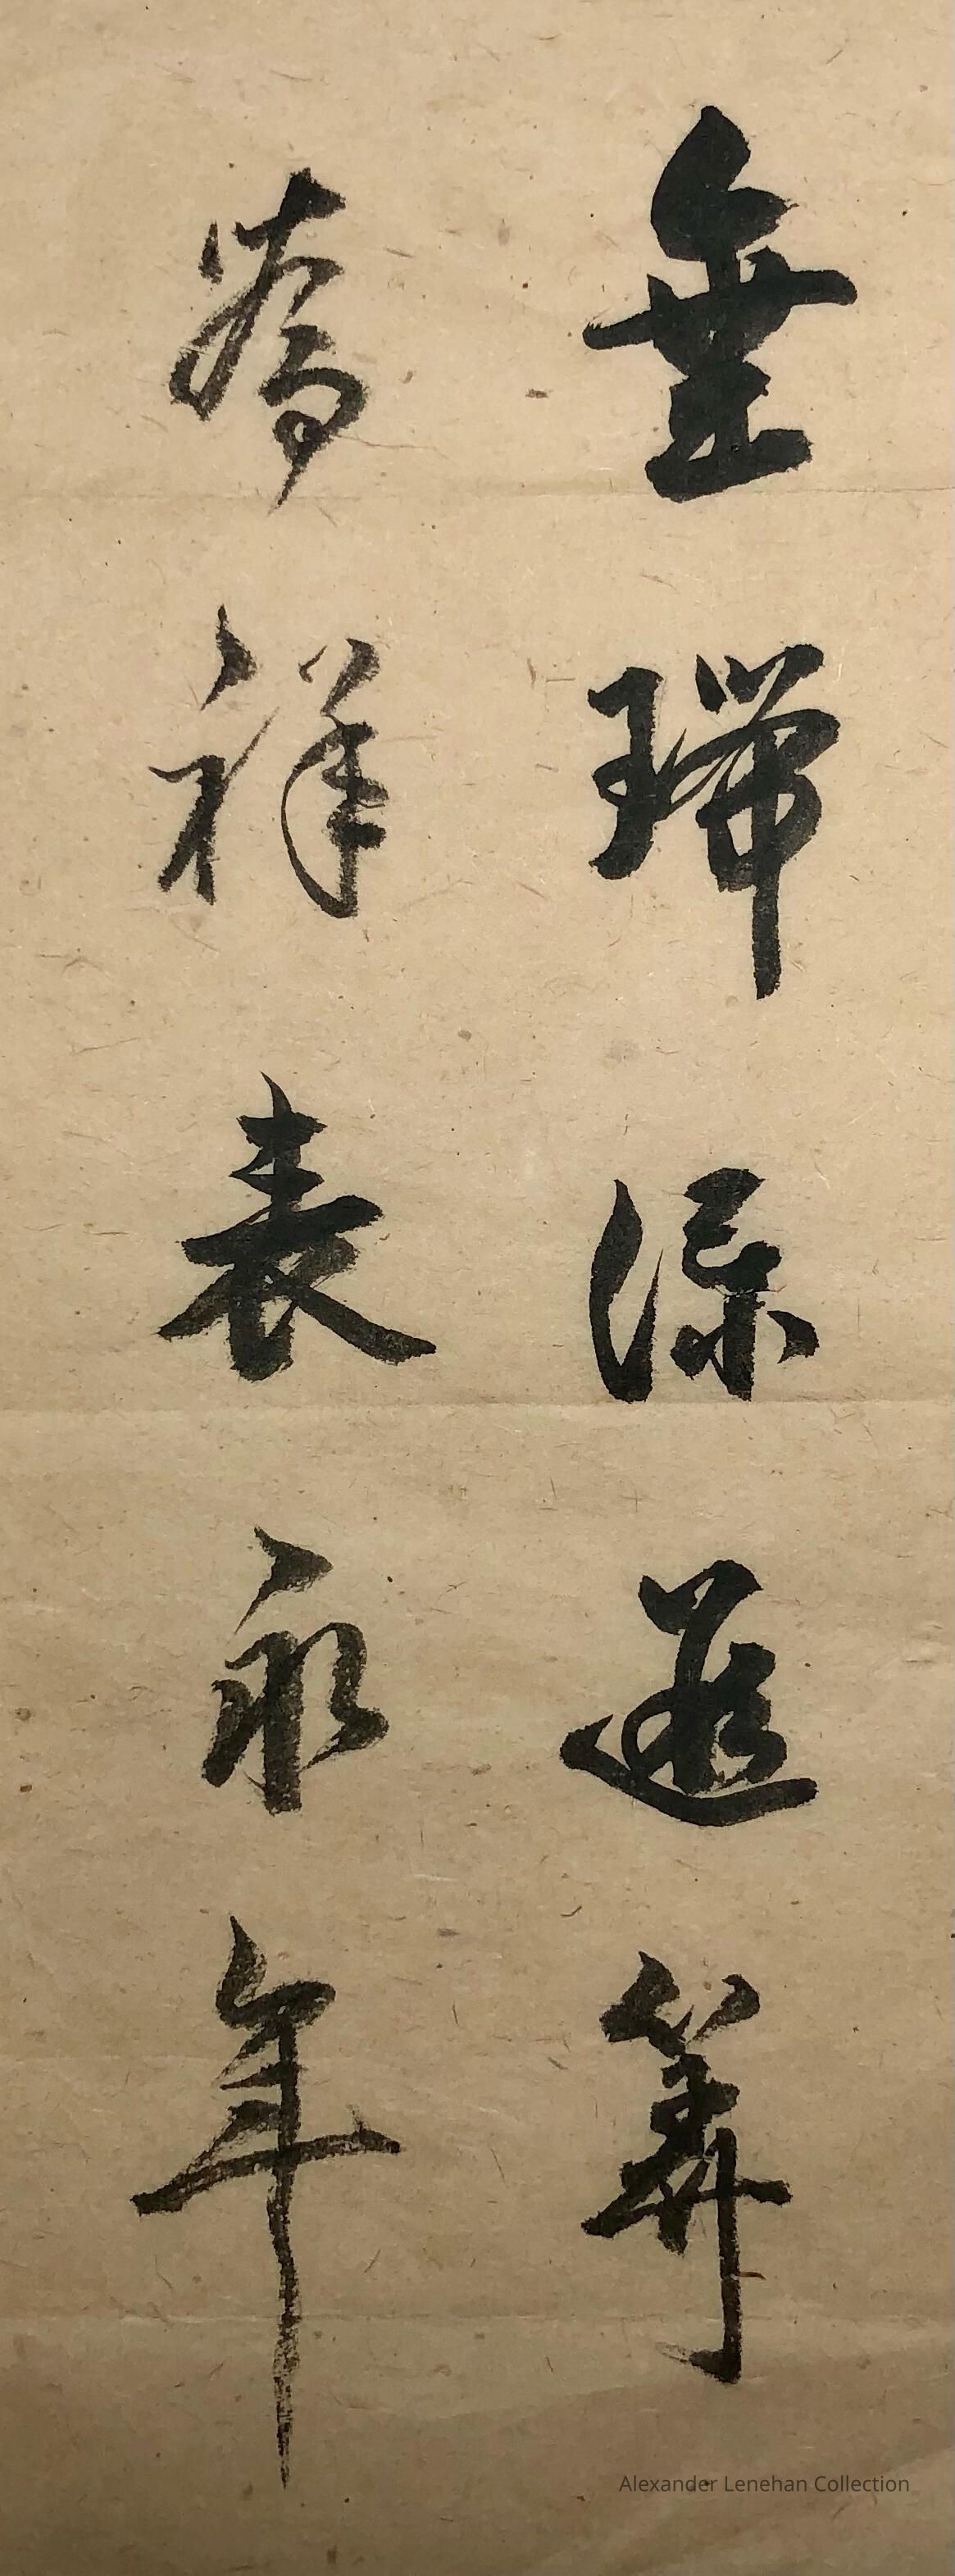 垂瑞深遐算
薦祥表永年
Alexander Lenehan Collection